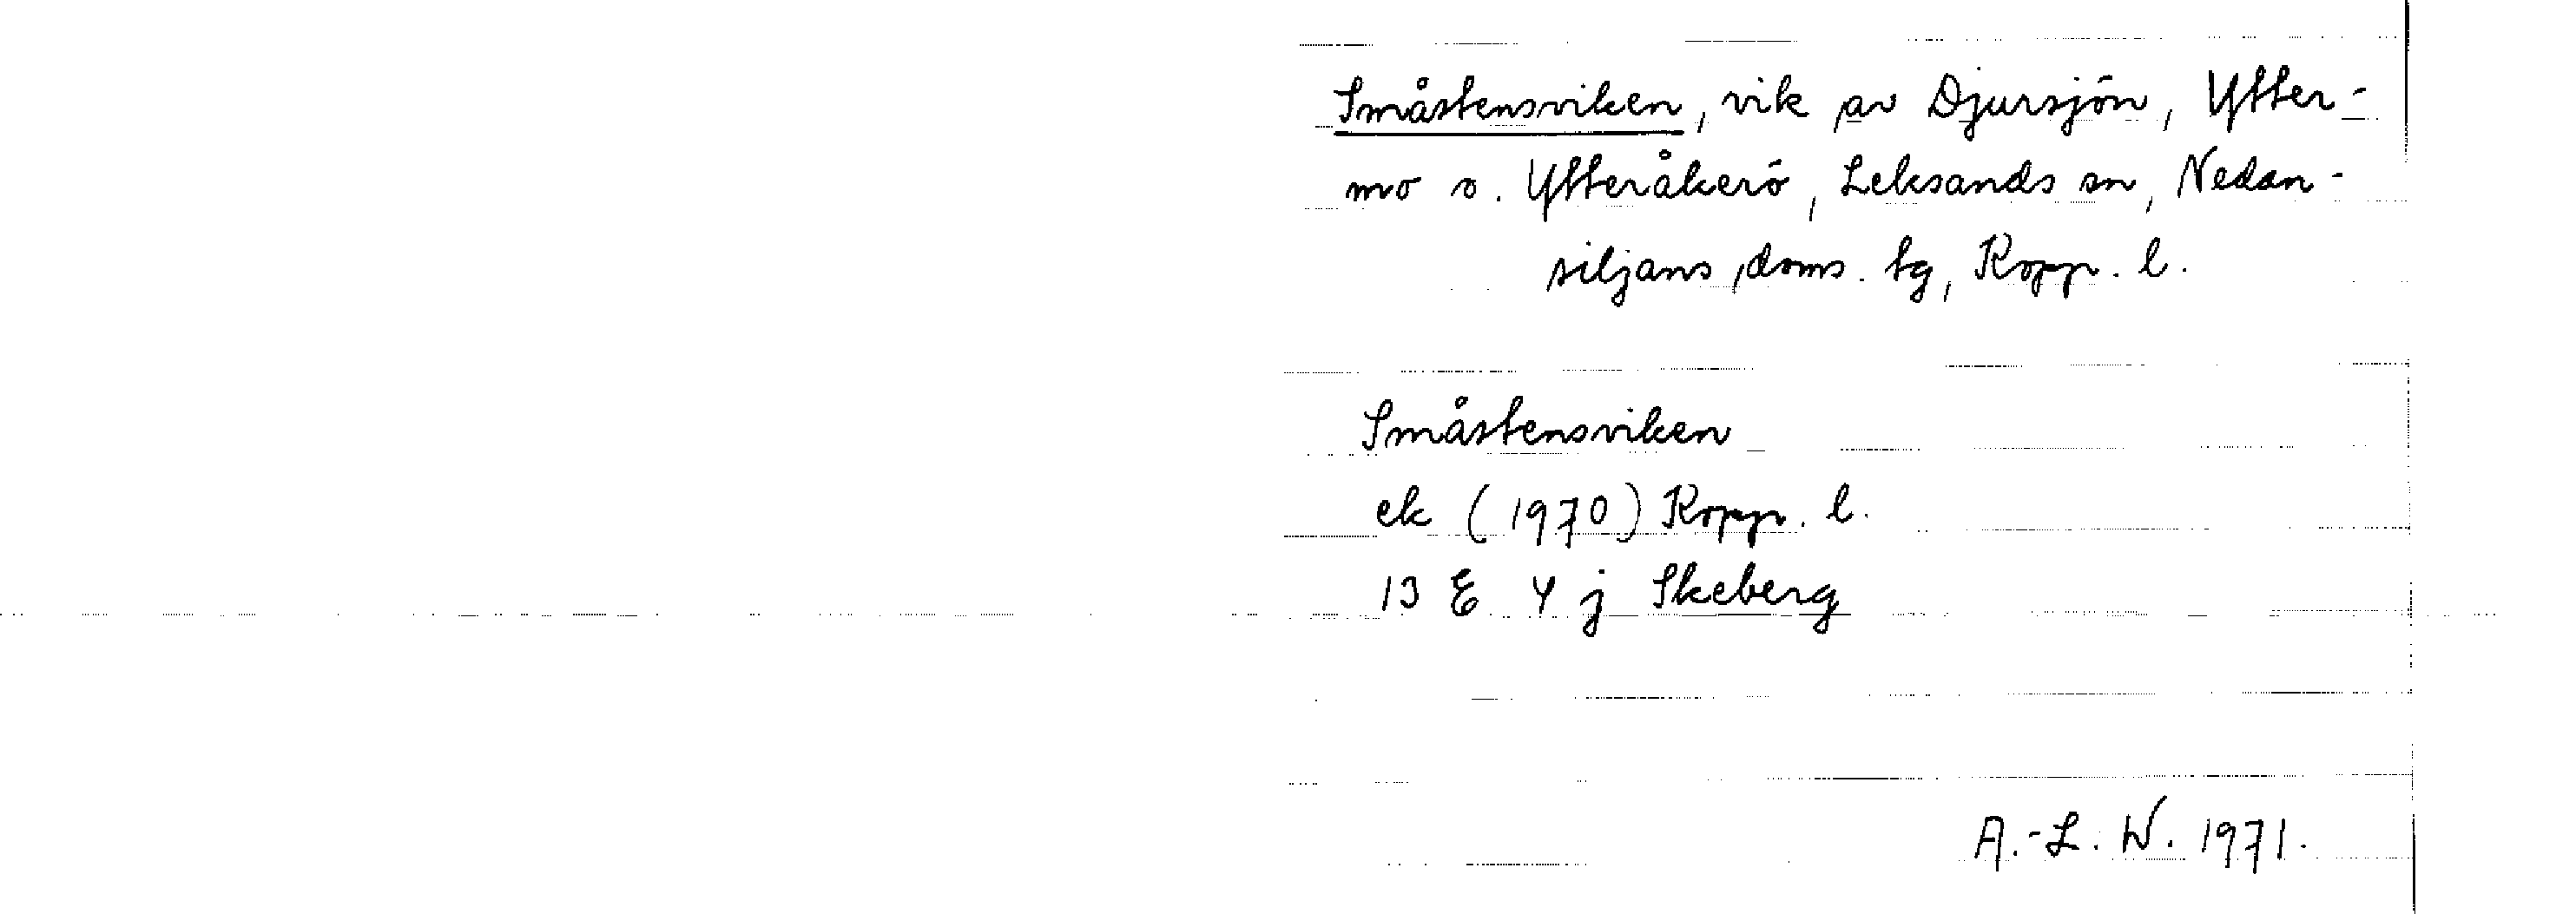 Småstensviken, vik av Djursjön, Ytter-
mo o. Ytteråkerö, Leksands sn, Nedan-
siljans doms. tg, Kopp. l.
Småstensviken
ek (1970) Kopp. l.
13 E 4 j Skeberg
A.-L. W. 1971.